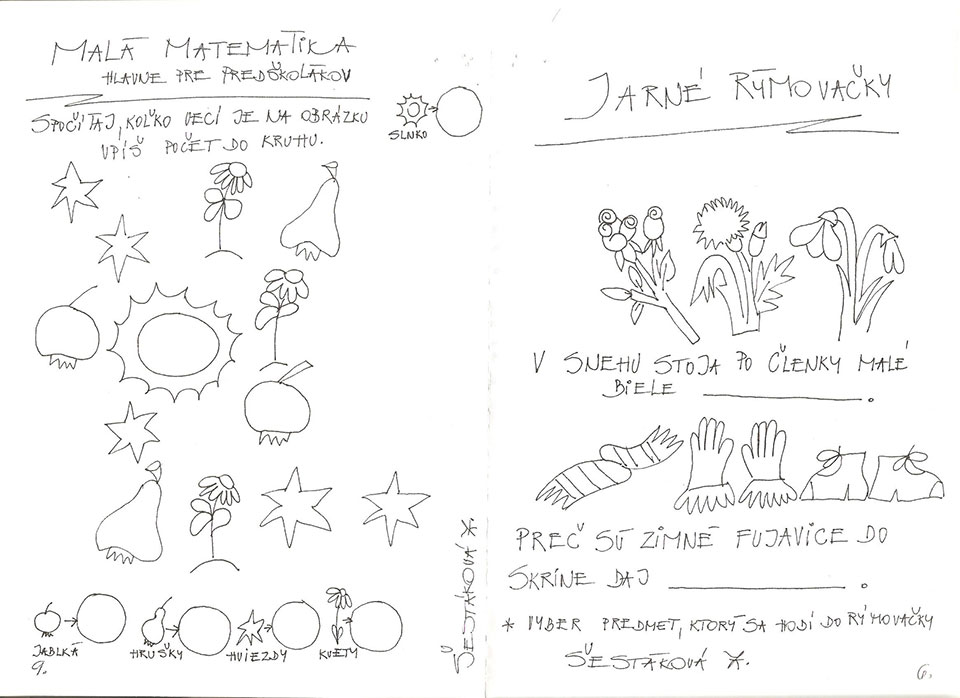 MALÁ MATEMATIKA
HLAVNE PRE PREDŠKOLÁKOV
SPOČÍTAJ, KOĽKO VECÍ JE NA OBRÁZKU
VPÍŠ POČET DO KRUHU.
SLNKO
JABLKÁ
HRUŠKY
HVIEZDY
KVETY
9.
ŠESTÁKOVÁ
JARNÉ RÝMOVAČKY
V SNEHU STOJA PO ČLENKY MALÉ
BIELE ______.
PREČ SÚ ZIMNÉ FUJAVICE DO
SKRINE DAJ ______.
* VYBER PREDMET, KTORÝ SA HODÍ DO RÝMOVAČKY
ŠESTÁKOVÁ
6.